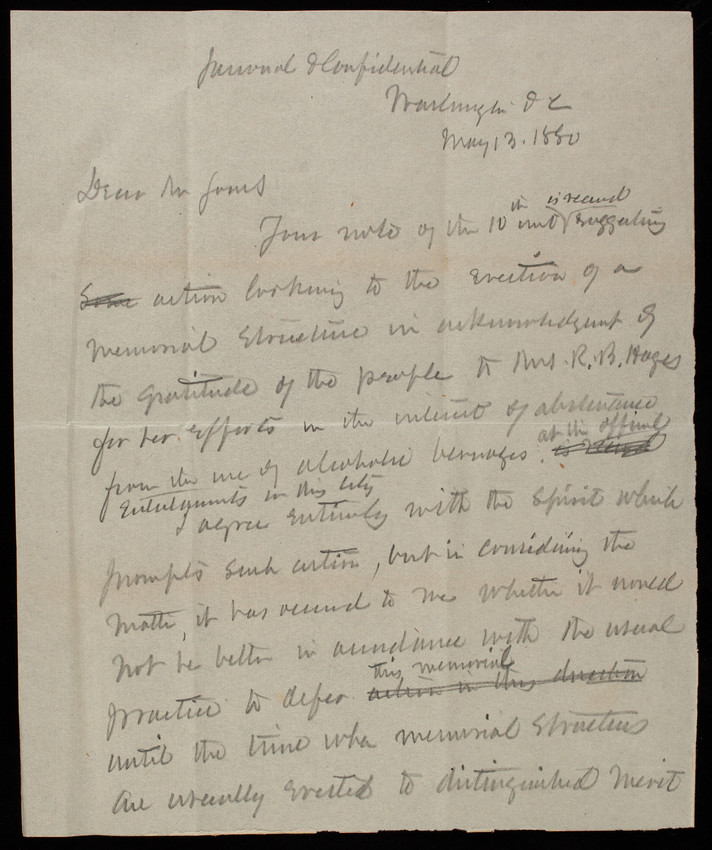 Personal & Confidential
Washington D C
May 13. 1880
Dear Mr Jones
Your note of the 10th inst is recevd suggesting
Some action looking to the erection of a
memorial structure in acknowledgment of
the gratitude of the people to Mrs. R. B. Hayes
for her efforts in the interest of abstinence
from the use of alcoholic beverages. at the official
Entertainments in this City
I agree entirely with the spirit which
prompts such action, but in considering the
matter, it has occurred to me whether it would
not be better in accordance with the usual
practice to defer this memorial action in this direction
until the time when memorial structures
are usually erected to distinguished merit